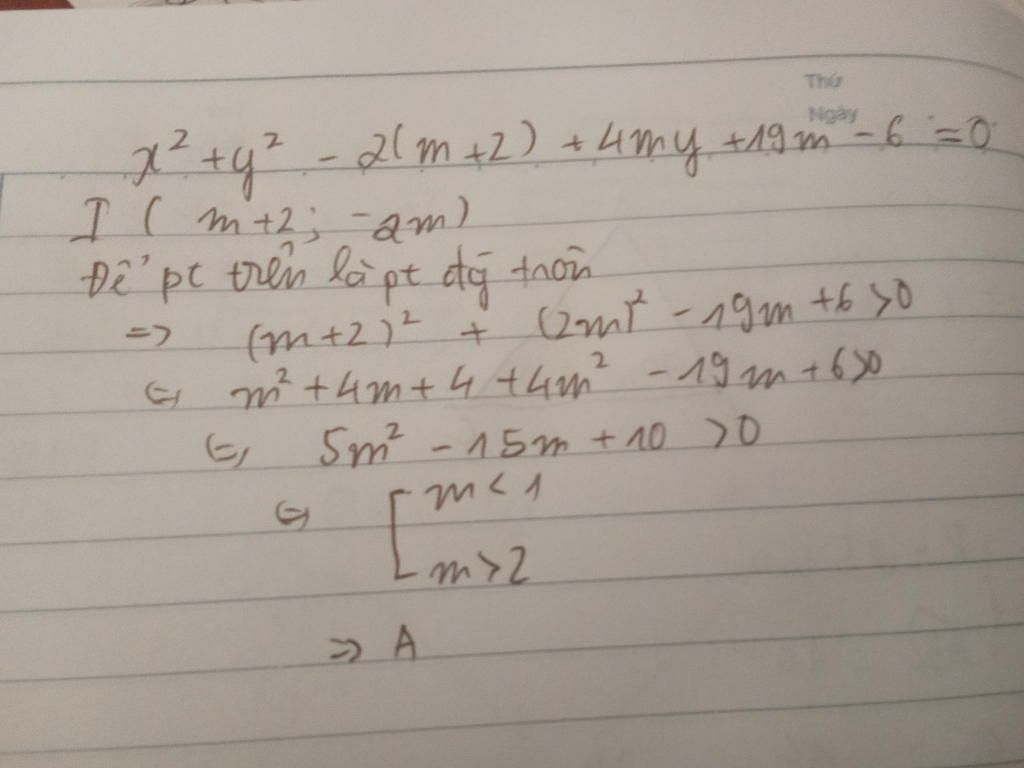 Thứ
Ngày
x² + y² - 2(m+2) + 4my + 19m - 6 = 0
I ( m+2; -2m)
Để pt trên là pt đg tròn
=> (m+2)² + (2m)² - 19m + 6 > 0
<=> m² + 4m + 4 + 4m² - 19m + 6 > 0
<=> 5m² - 15m + 10 > 0
<=> [ m < 1
m > 2
=> A